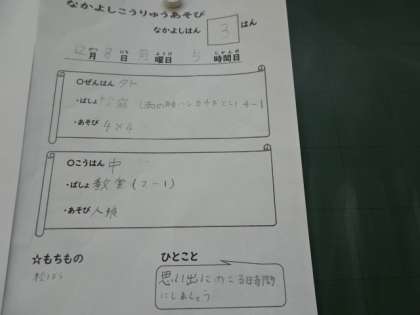 なかよしこうりゅうあそび
なかよしはん 3 はん
12月8日月曜日 5時間目
○ぜんはん 外
・ばしょ
・あそび 4×4
○こうはん 中
・ばしょ 教室(2-1)
・あそび 人狼
☆もちもの
ひとこと
思い出にのこる時間
にしましょう